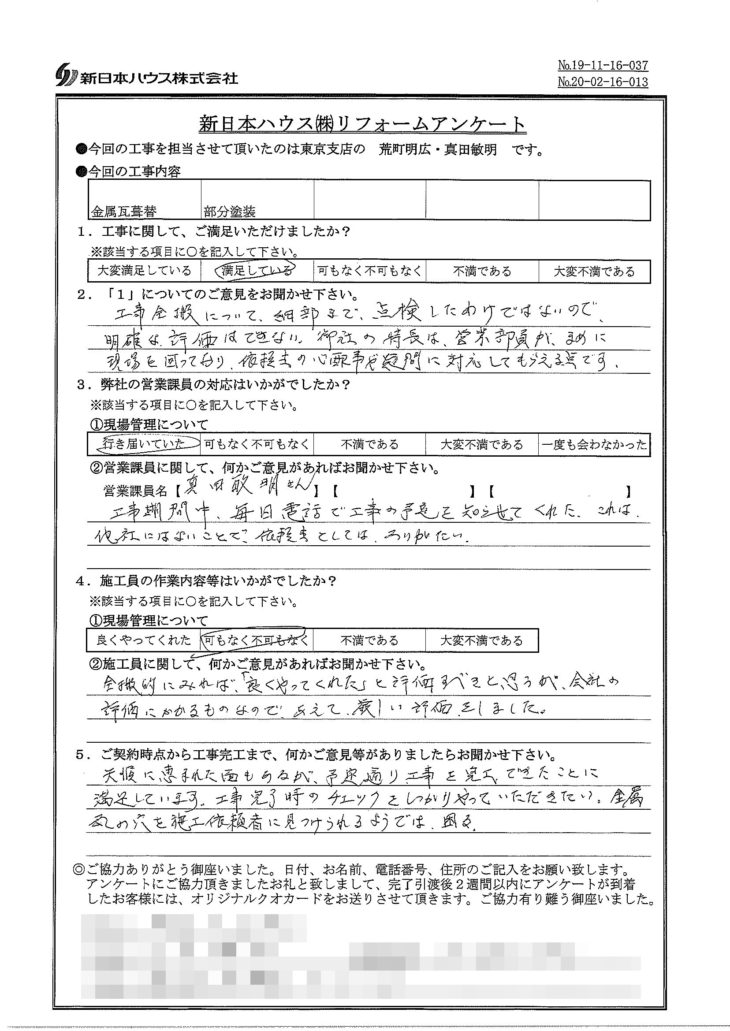 新日本ハウス株式会社
№19-11-16-037
№20-02-16-013
新日本ハウス㈱リフォームアンケート
●今回の工事を担当させて頂いたのは東京支店の 荒町明広・真田敏明 です。
●今回の工事内容
金属瓦葺替 部分塗装
1．工事に関して、ご満足いただけましたか？
※該当する項目に○を記入して下さい。
大変満足している 満足している 可もなく不可もなく 不満である 大変不満である
2．「1」についてのご意見をお聞かせ下さい。
工事全搬について、細部まで、点検したわけではないので、
明確な評価はできない。御社の特長は、営業部員が、まめに
現場を回っており、依頼主の心配事や疑問に対応してもらえる点です。
3．弊社の営業課員の対応はいかがでしたか？
※該当する項目に○を記入して下さい。
①現場管理について
行き届いていた 可もなく不可もなく 不満である 大変不満である 一度も会わなかった
②営業課員に関して、何かご意見があればお聞かせ下さい。
営業課員名【真田敏明さん】【 】【 】
工事期間中、毎日電話で工事の予定を知らせてくれた、これは、
他社にはないことで、依頼主としては、ありがたい。
4．施工員の作業内容等はいかがでしたか？
※該当する項目に○を記入して下さい。
①現場管理について
良くやってくれた 可もなく不可もなく 不満である 大変不満である
②施工員に関して、何かご意見があればお聞かせ下さい。
全搬的にみれば、「良くやってくれた」と評価すべきと思うが、会社の
評価にかかるものなので、あえて、厳しい評価をしました。
5．ご契約時点から工事完工まで、何かご意見等がありましたらお聞かせ下さい。
天候に恵まれた面もあるが、予定通り工事を完工できたことに
満足しています。工事完了時のチェックをしっかりやっていただきたい。金属
瓦の穴を施工依頼者に見つけられるようでは、困る。
◎ご協力ありがとう御座いました。日付、お名前、電話番号、住所のご記入をお願い致します。
アンケートにご協力頂きましたお礼と致しまして、完了引渡後２週間以内にアンケートが到着
したお客様には、オリジナルクオカードをお送りさせて頂きます。ご協力有り難う御座いました。